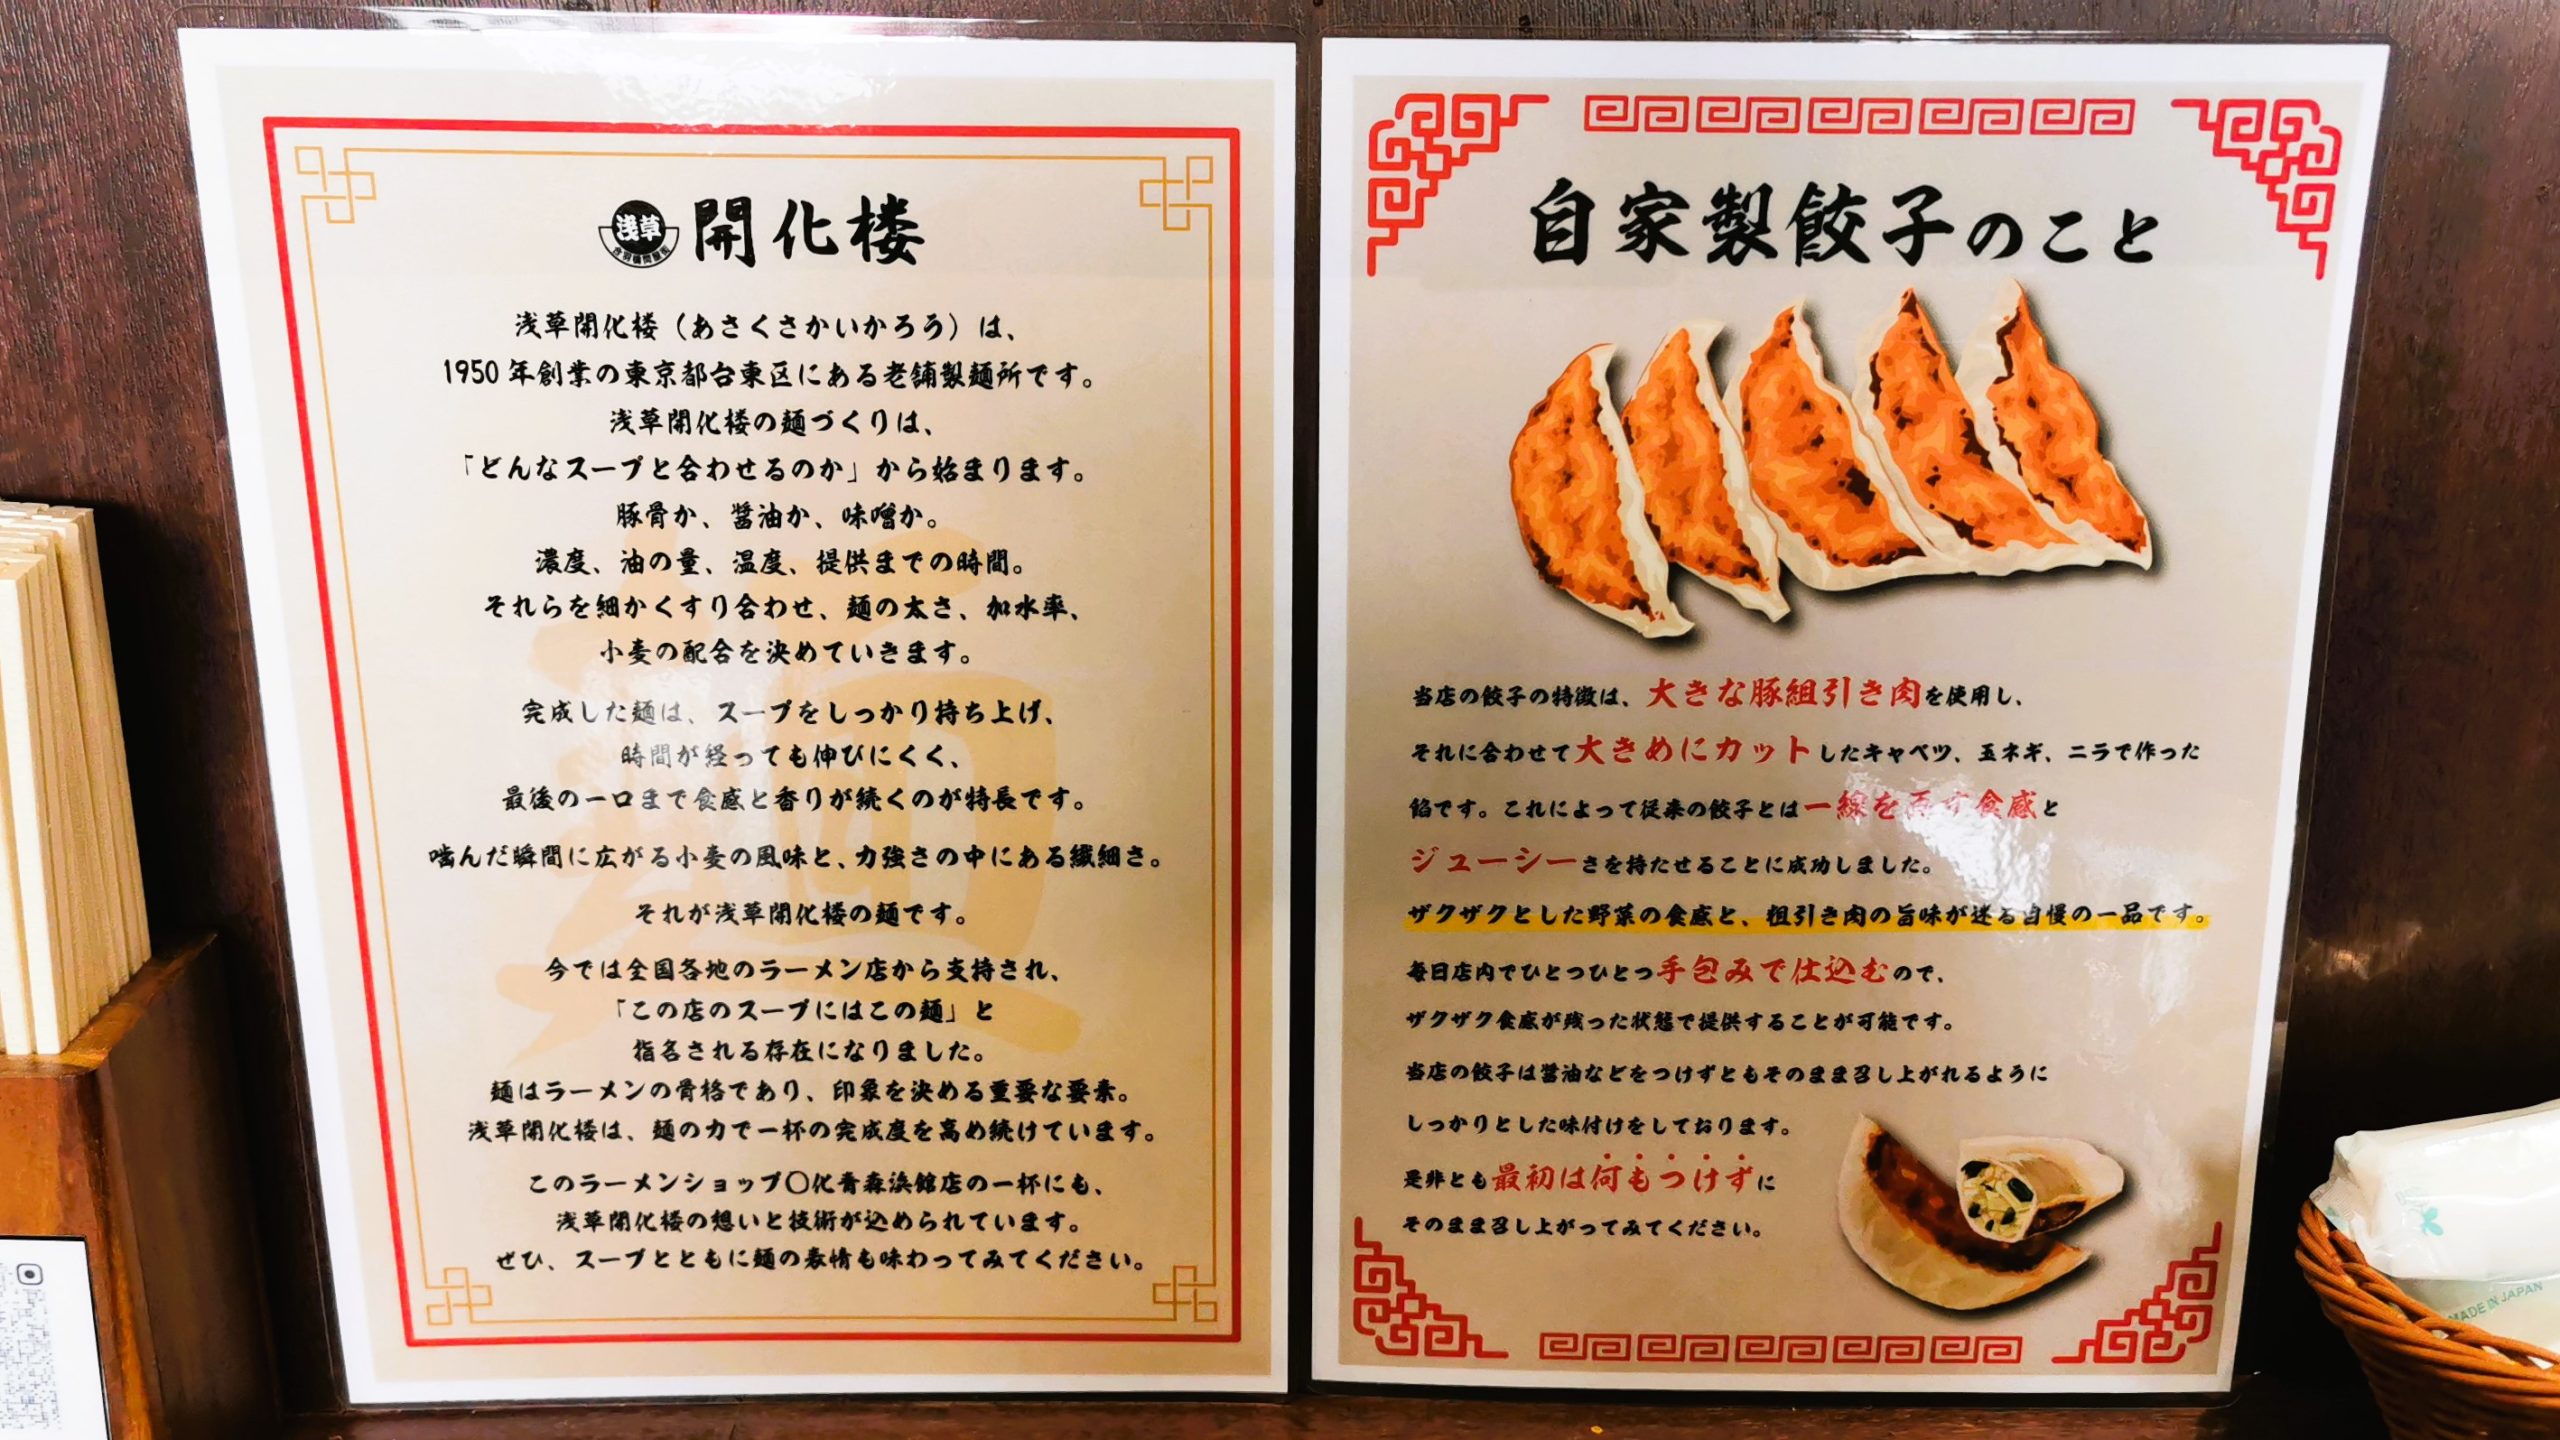 浅草
開化楼
浅草開化楼（あさくさかいかろう）は、
1950年創業の東京都台東区にある老舗製麺所です。
浅草開化楼の麺づくりは、
「どんなスープと合わせるのか」から始まります。
豚骨か、醤油か、味噌か。
濃度、油の量、温度、提供までの時間。
それらを細かくすり合わせ、麺の太さ、加水率、
小麦の配合を決めていきます。
完成した麺は、スープをしっかり持ち上げ、
時間が経っても伸びにくく、
最後の一口まで食感と香りが続くのが特長です。
噛んだ瞬間に広がる小麦の風味と、力強さの中にある繊細さ。
それが浅草開化楼の麺です。
今では全国各地のラーメン店から支持され、
「この店のスープにはこの麺」と
指名される存在になりました。
麺はラーメンの骨格であり、印象を決める重要な要素。
浅草開化楼は、麺の力で一杯の完成度を高め続けています。
このラーメンショップ〇化青森浜館店の一杯にも、
浅草開化楼の想いと技術が込められています。
ぜひ、スープとともに麺の表情も味わってみてください。
自家製餃子のこと
当店の餃子の特徴は、大きな豚組引き肉を使用し、
それに合わせて大きめにカットしたキャベツ、玉ネギ、ニラで作った
餡です。これによって従来の餃子とは一線を画す食感と
ジューシーさを持たせることに成功しました。
ザクザクとした野菜の食感と、粗引き肉の旨味が迸る自慢の一品です。
毎日店内でひとつひとつ手包みで仕込むので、
ザクザク食感が残った状態で提供することが可能です。
当店の餃子は醤油などをつけずともそのまま召し上がれるように
しっかりとした味付けをしております。
是非とも最初は何もつけずに
そのまま召し上がってみてください。
MADE IN JAPAN